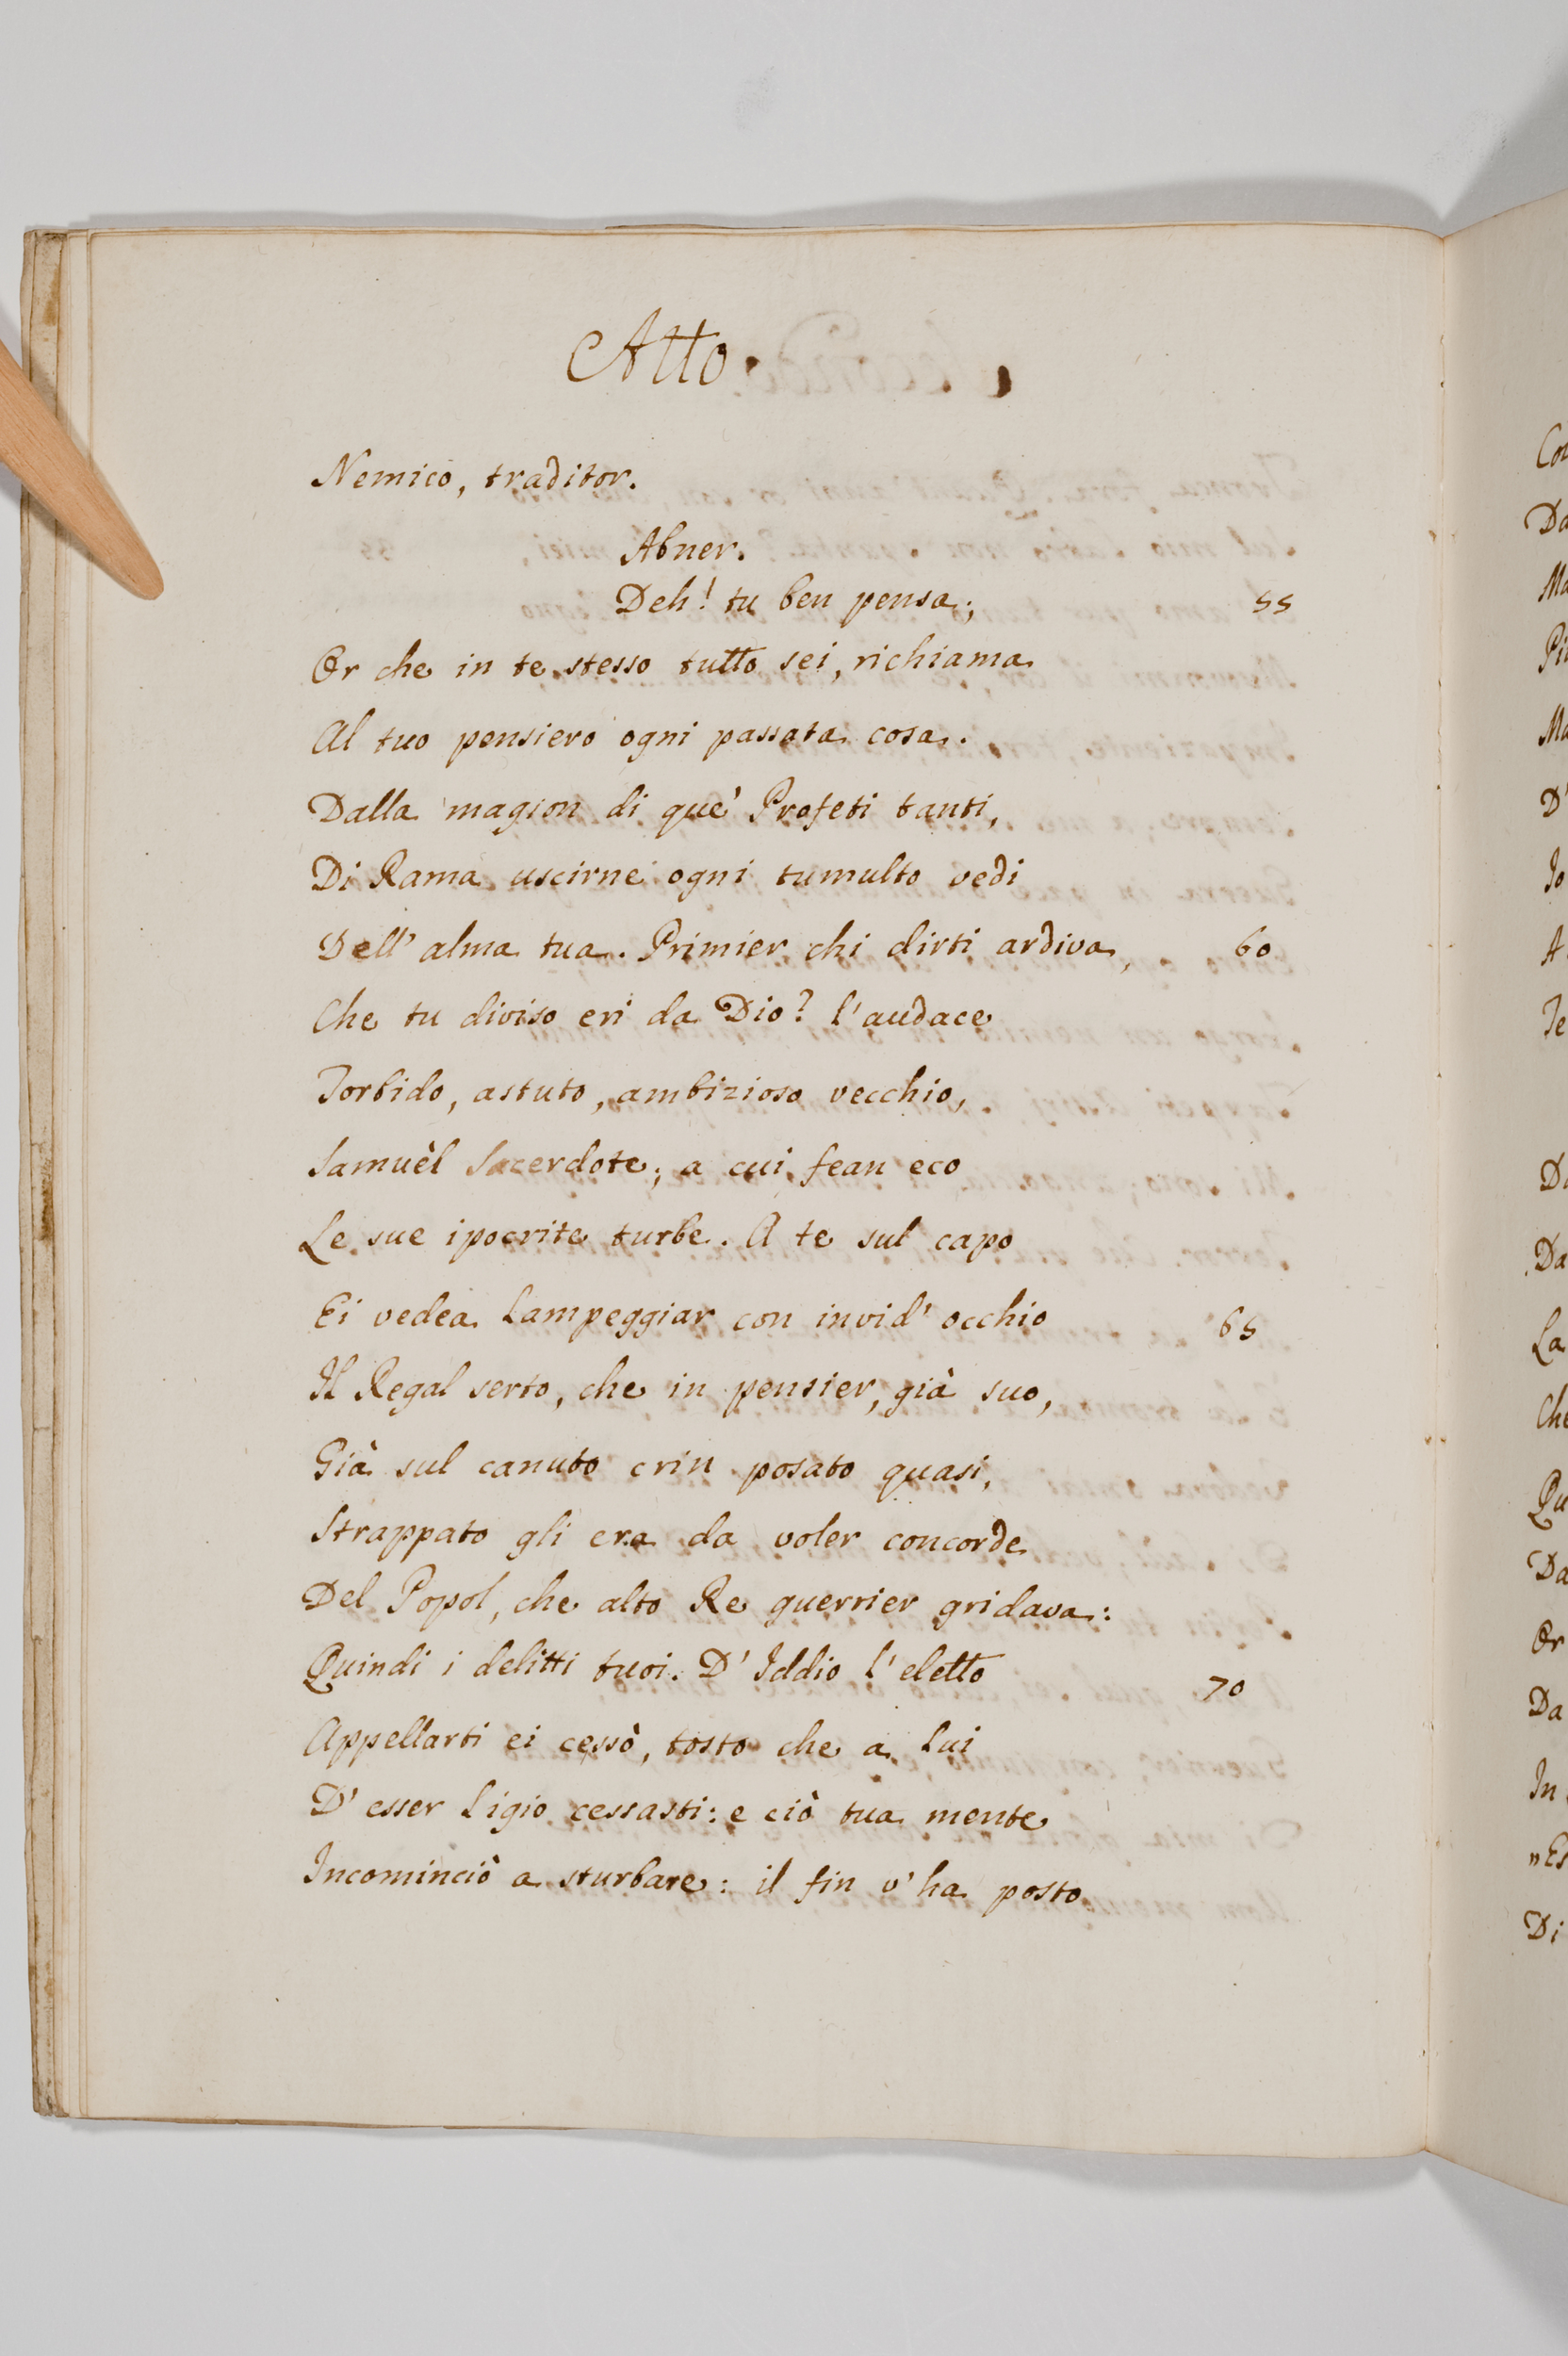 Atto
Nemico, traditor.
Abner.
Deh! tu ben pensa; 55
Or che in te stesso tutto sei, richiama
Al tuo pensiero ogni passata cosa.
Dalla magion di que' Profeti tanti,
Di Rama uscirne ogni tumulto vedi
Dell' alma tua. Primier chi dirti ardiva, 60
Che tu diviso eri da Dio? l'audace
Torbido, astuto, ambizioso vecchio,
Samuèl Sacerdote; a cui fean eco
Le sue ipocrite turbe. A te sul capo
Ei vedea lampeggiar con invid' occhio 65
Il Regal serto, che in pensier, già suo,
Già sul canuto crin posato quasi,
Strappato gli era da voler concorde
Del Popol, che alto Re guerrier gridava:
Quindi i delitti tuoi. D' Iddio l' eletto 70
Appellarti ei cessò, tosto che a lui
D' esser ligio cessasti: e ciò tua mente
Incominciò a sturbare: il fin v' ha posto
Da
Ma
Ma
D'
Io
A
Te
Da
La
Che
Da
Or
Da
In
Di